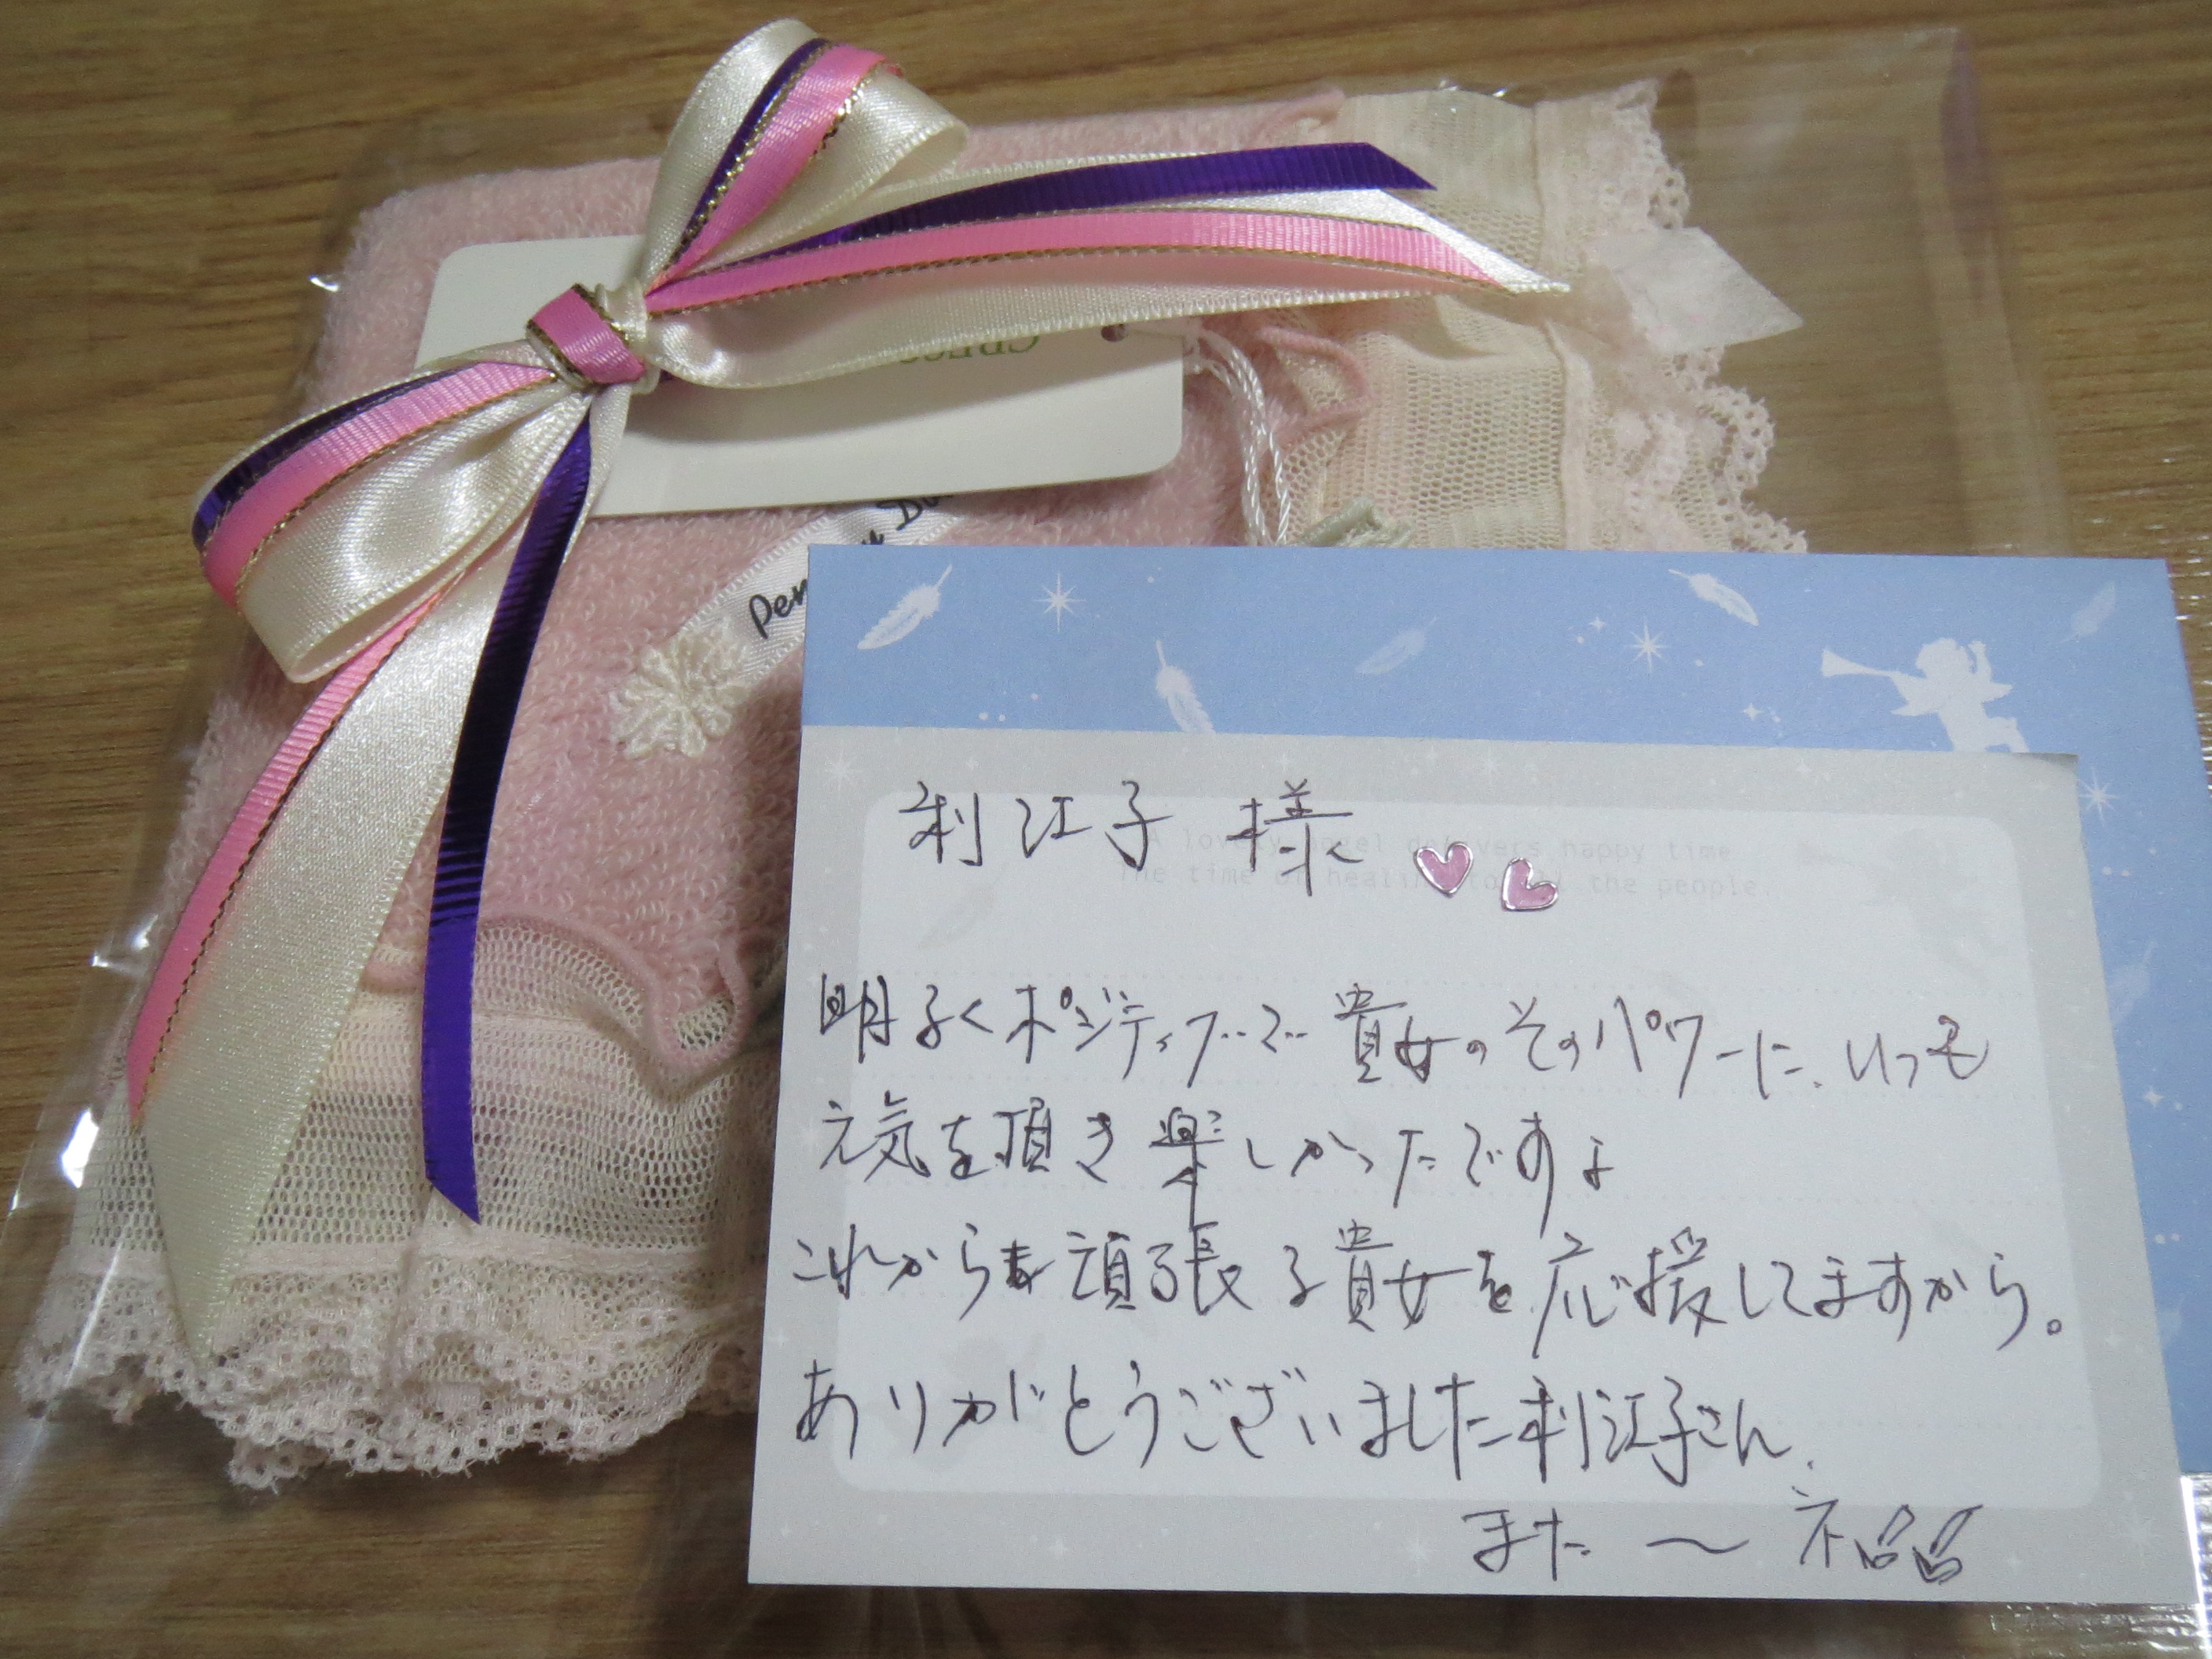 利江子 様
A lovely angel delivers happy time.
The time of healing to all the people.
明るくポジティブで貴女のそのパワーに、いつも
元気を頂き楽しかったですよ
これからも頑張る貴女を応援してますから。
ありがとうございました利江子さん、
また〜ネ